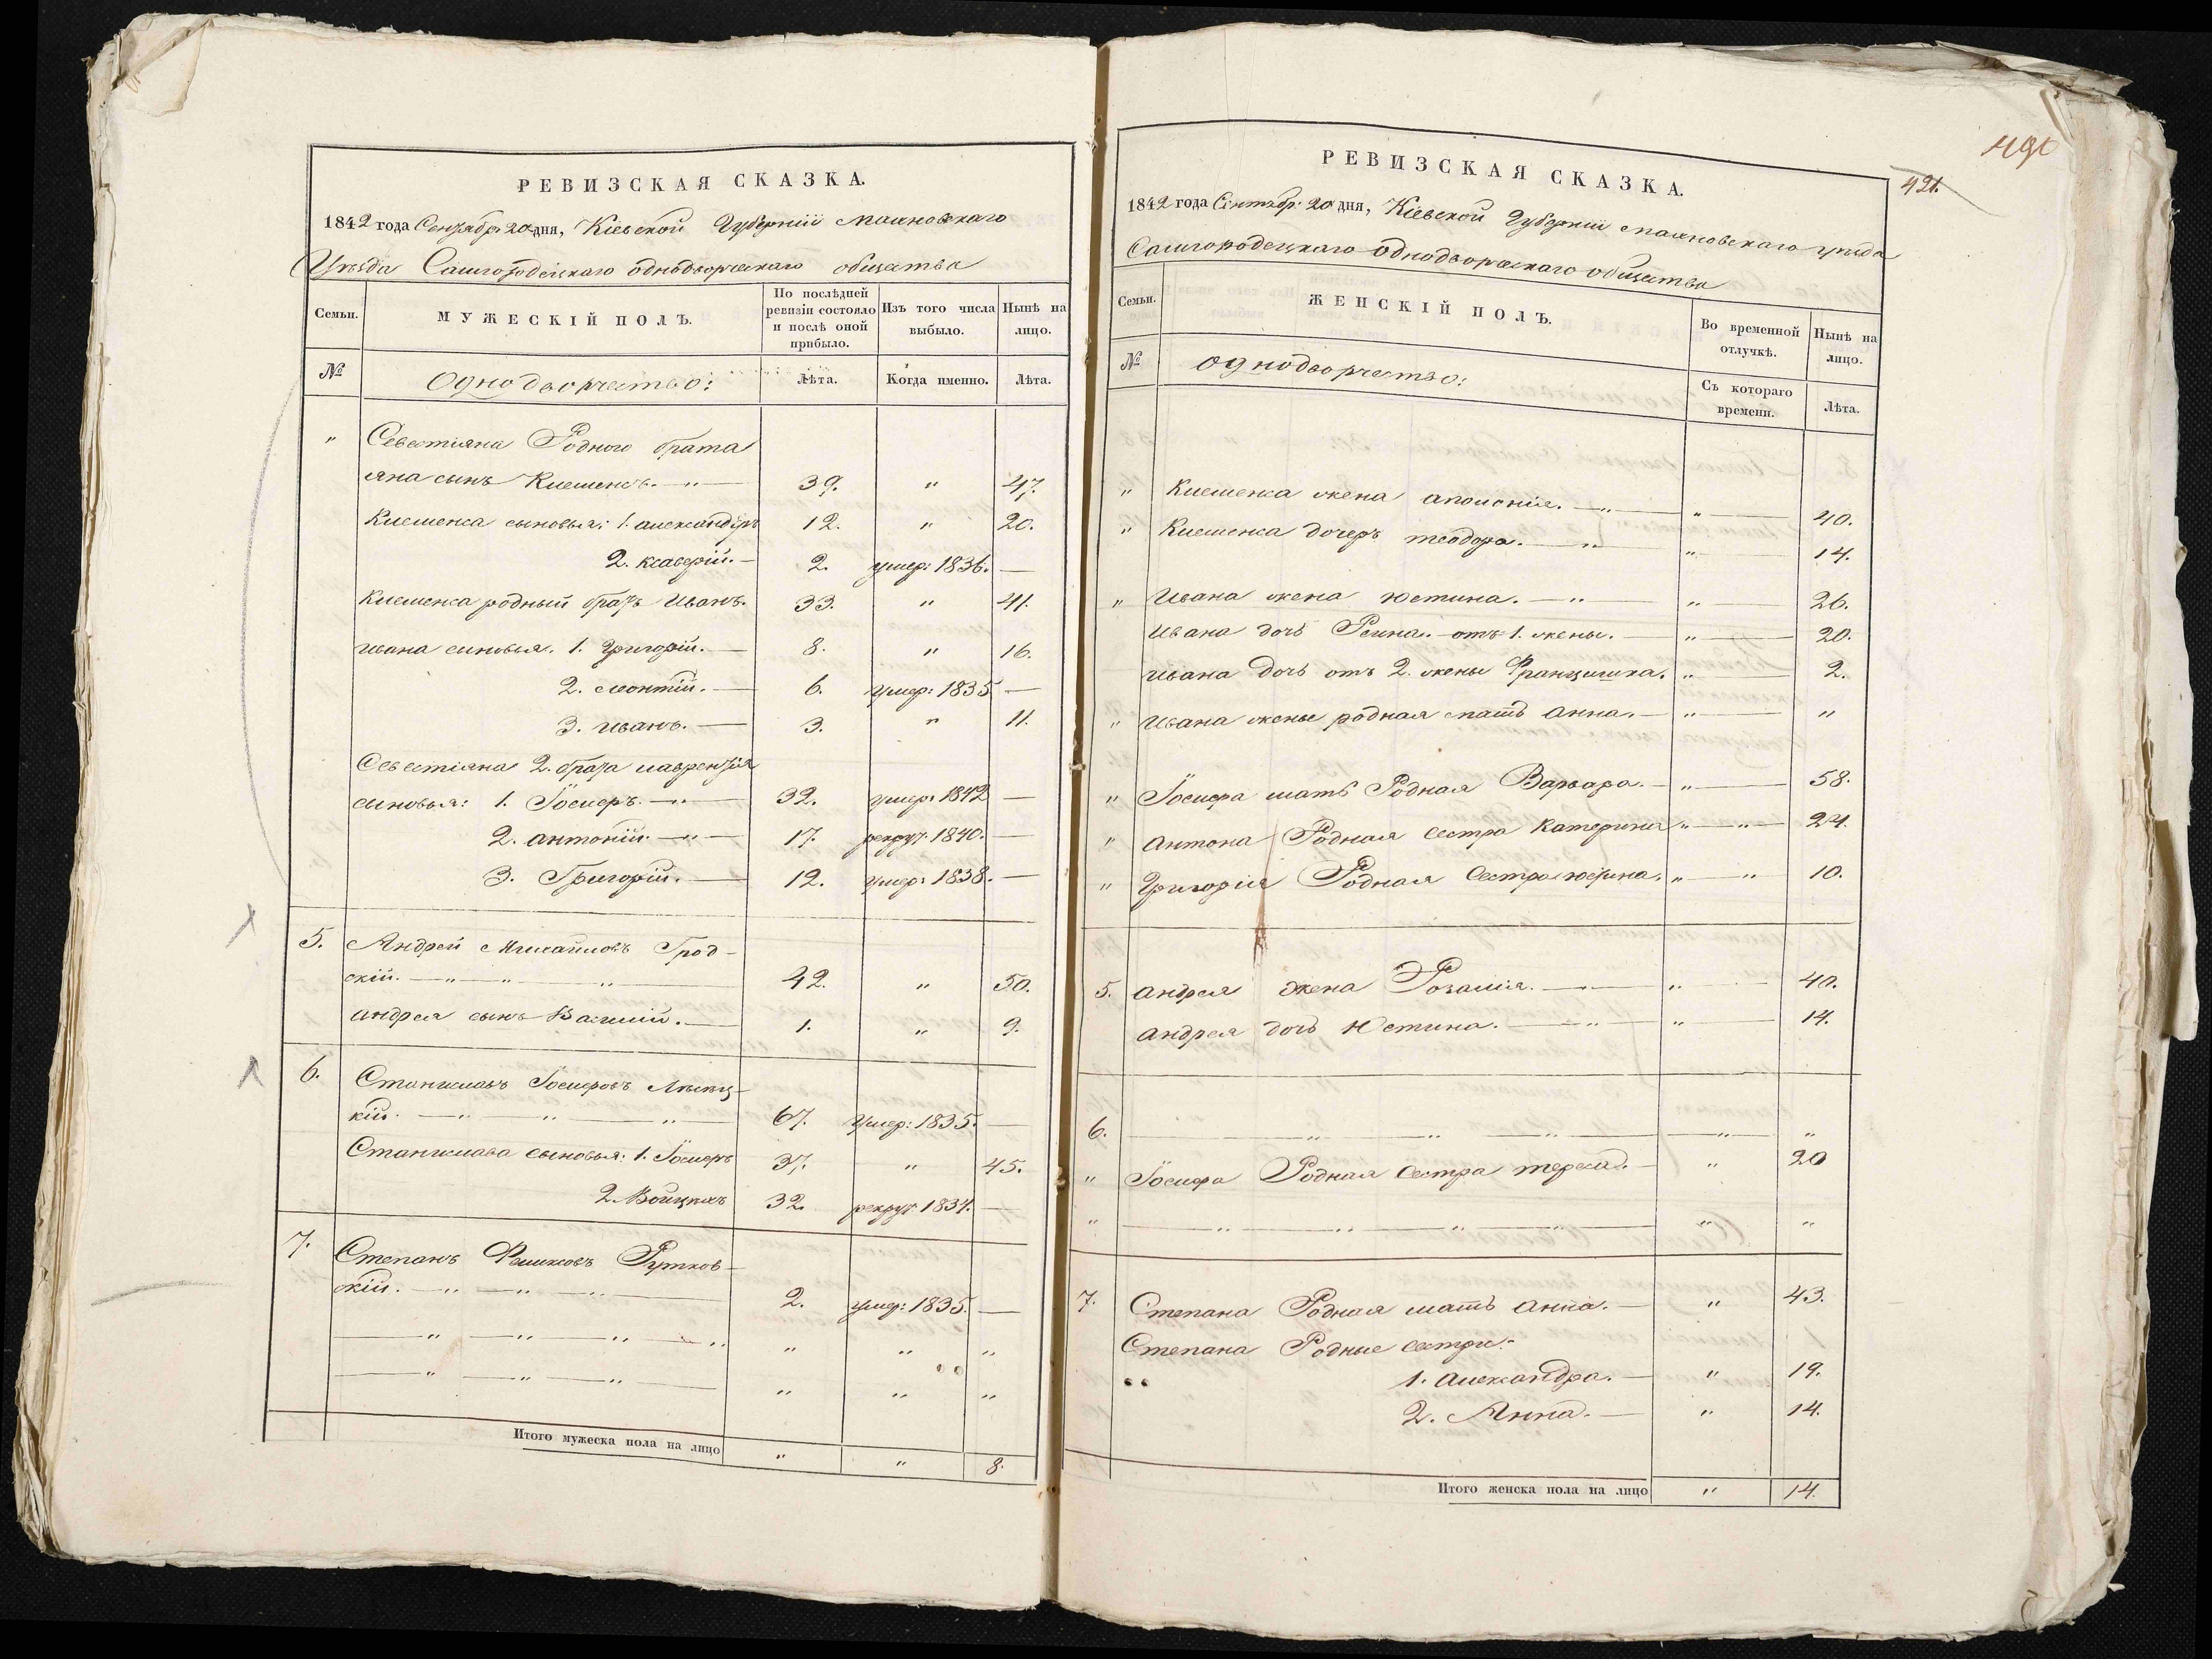 РЕВИЗСКАЯ СКАЗКА.
1842 года Сентябр. 20 дня, Кіевской Губерніи Махновскаго
Уѣзда Самгородецкаго однодворческаго общества
Семьи.
МУЖЕСКІЙ ПОЛЪ.
По послѣдней ревизіи состояло и послѣ оной прибыло.
Изъ того числа выбыло.
Нынѣ на лицо.
№ Однодворчество: Лѣта. Когда именно. Лѣта.
" Севестіяна Роднаго брата
яна сынъ Клеменсъ. — " — 39. " 47.
Клеменса сыновья: 1. александръ 12. " 20.
2. ксаверій. — 2. умер: 1836. —
Клеменса родный братъ Иванъ. 33. " 41.
ивана синовья. 1. Григорій. — 8. " 16.
2. леонтій. — 6. умер: 1835 —
3. иванъ. — 3. " 11.
Севестіяна 2. брата лаврентія
сыновья: 1. Іосифъ. — " — 32. умер: 1842 —
2. антоній. — " — 17. рекрут. 1840. —
3. Григорій. — 12. умер: 1838. —
5. Андрей Михайловъ Грод-
скій. — " — " — " 42. " 50.
андрея сынъ Василій. — 1. " 9.
6. Станиславъ Іосифовъ
кій. — " — " — " — 67. Умер: 1835. —
Станислава сыновья: 1. Іосифъ 37. " 45.
2. Войцѣхъ 32. рекрут. 1834. —
7. Степанъ Феликсовъ Рутков-
скій. — " — " — " 2. умер: 1835. —
— " — " — " — " " " "
— " — " — " — " " "
Итого мужеска пола на лицо " " 8.
491
421.
РЕВИЗСКАЯ СКАЗКА.
1842 года Сентябр: 20 дня, Кіевской Губерніи Махновскаго уѣзда
Самгородецкаго однодворческаго общества
Семьи.
ЖЕНСКІЙ ПОЛЪ.
Во временной отлучкѣ.
Нынѣ на лицо.
№ однодворчество: Съ котораго времени. Лѣта.
" Клеменса жена аполонія. — " — " — 40.
" Клеменса дочерь теодора. — " — " — 14.
" Ивана жена юстина. — " — " — 26.
Ивана дочь отъ 1. жены. — " — 20.
ивана дочь отъ 2. жены Францишка. " — 2.
" ивана жены родная мать анна. — " — "
" Іосифа мать Родная Варвара. — " — 58.
" антона Родная сестра катерина " — " — 24.
" Григорія Родная Сестра юстина. " — " 10.
5. андрея жена Розалія. — " — " — 40.
андрея дочь Юстина. — " — " — 14.
6. — " — " — " — " — "
" Іосифа Родная Сестра тереса. — " 20
" — " — " — " — " — " "
7. Степана Родная мать анна. — " 43.
Степана Родные сестри:
" 1. александра. — " 19.
2. Анна. — " 14.
Итого женска пола на лицо " 14.